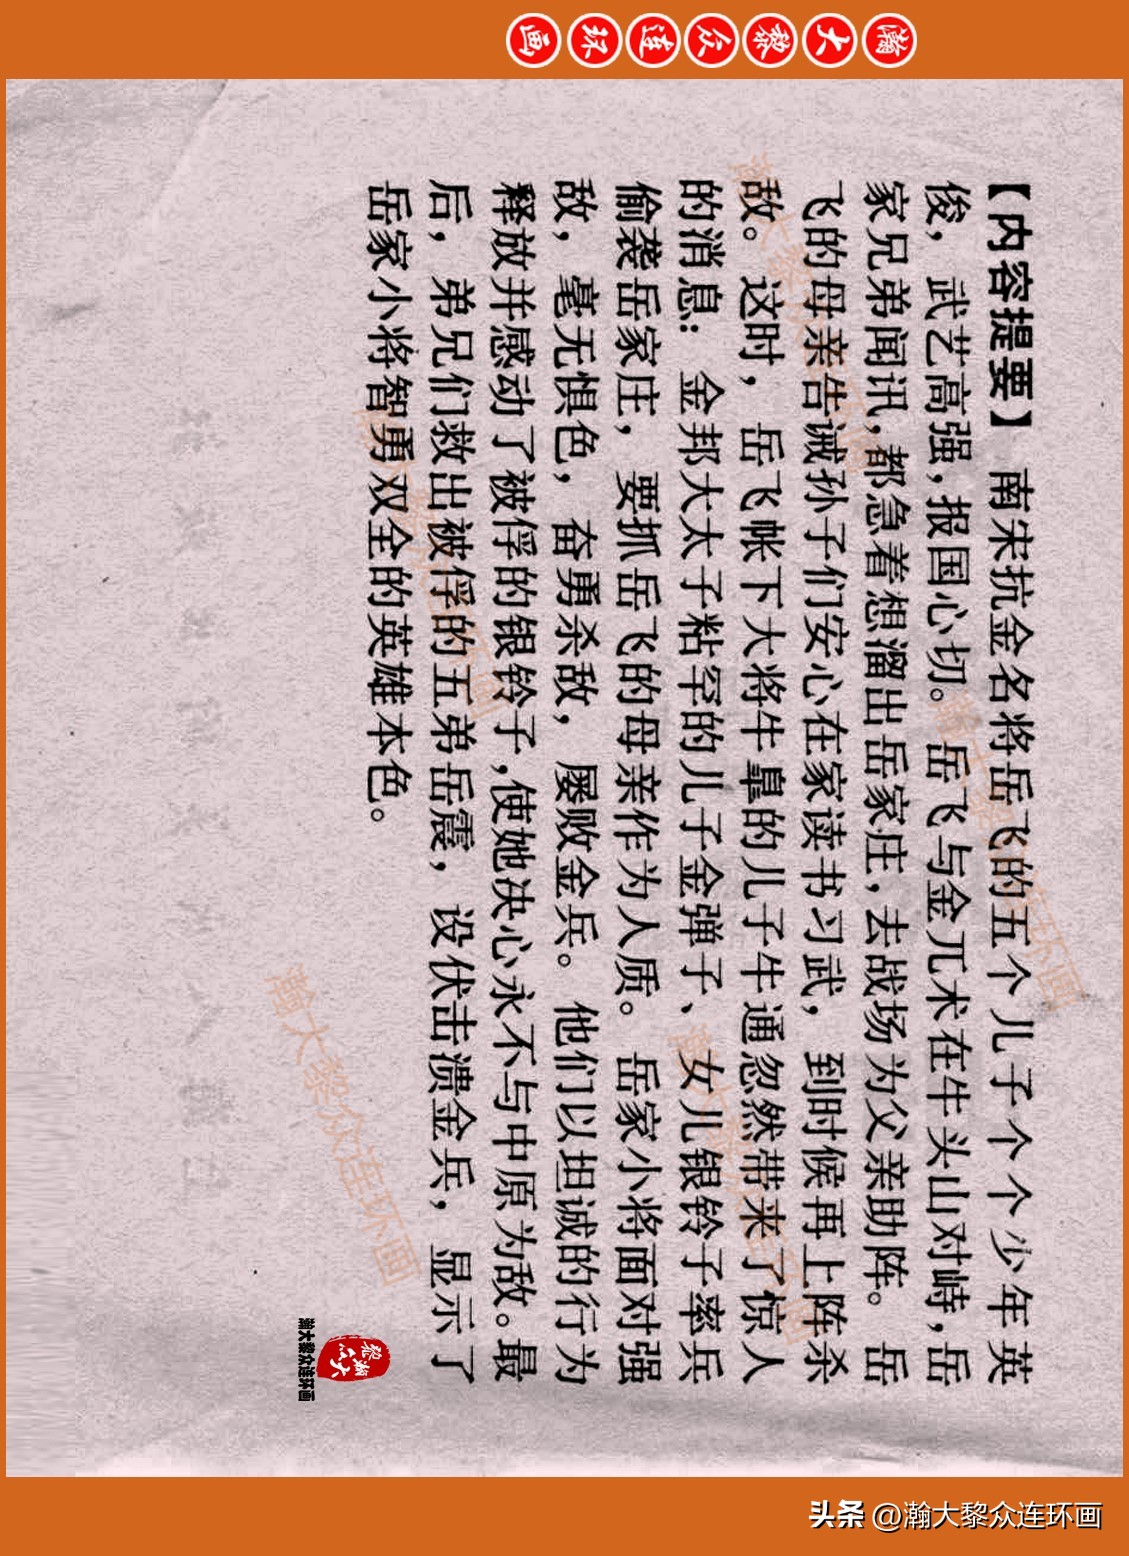 瀚大黎众连环画
【内容提要】 南宋抗金名将岳飞的五个儿子个个少年英
俊，武艺高强，报国心切。岳飞与金兀术在牛头山对峙，岳
家兄弟闻讯，都急着想溜出岳家庄，去战场为父亲助阵。岳
飞的母亲告诫孙子们安心在家读书习武，到时候再上阵杀
敌。这时，岳飞帐下大将牛皋的儿子牛通忽然带来了惊人
的消息：金邦大太子粘罕的儿子金弹子、女儿银铃子率兵
偷袭岳家庄，要抓岳飞的母亲作为人质。岳家小将面对强
敌，毫无惧色，奋勇杀敌，屡败金兵。他们以坦诚的行为
释放并感动了被俘的银铃子，使她决心永不与中原为敌。最
后，弟兄们救出被俘的五弟岳震，设伏击溃金兵，显示了
岳家小将智勇双全的英雄本色。
瀚大黎众连环画
瀚大黎众连环画
瀚大黎众连环画
瀚大黎众连环画
头条 @瀚大黎众连环画